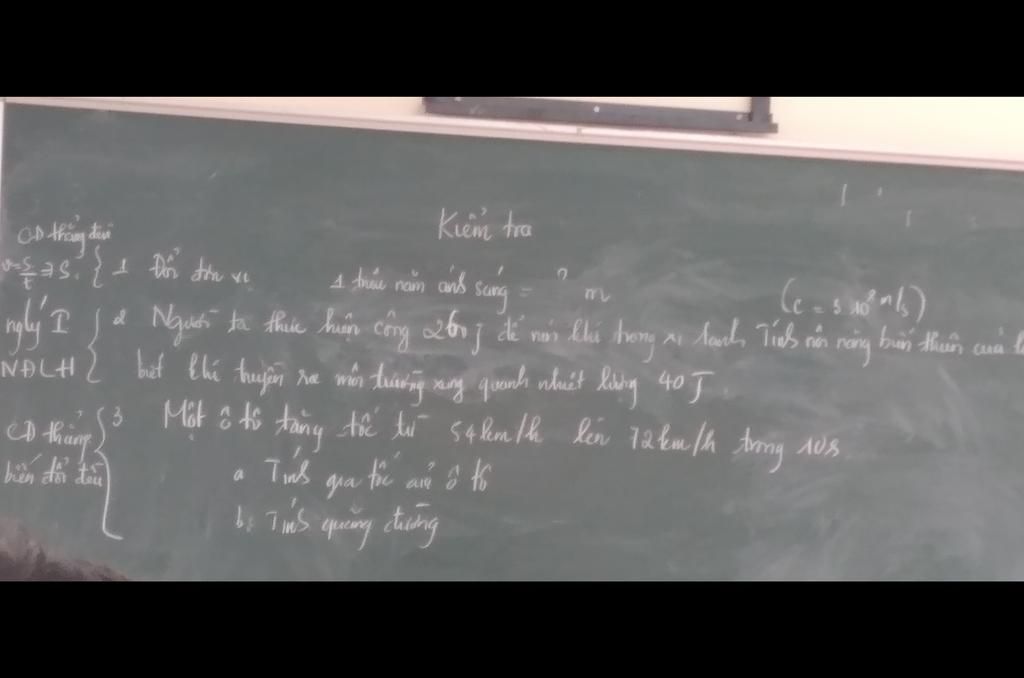 Kiểm tra
CĐ thẳng đều
v=S/t ⇒ S. { 1 Đổi đơn vị 1 triệu năm ánh sáng = ? m (c = 3.10⁸ m/s)
nglý I { 2 Người ta thực hiện công 260J để nén khí trong xi lanh Tính nội năng biến thiên của
NĐLH biết khí truyền ra môi trường xung quanh nhiệt lượng 40J
CĐ thẳng { 3 Một ô tô tăng tốc từ 54km/h lên 72km/h trong 10s
biến đổi đều a Tính gia tốc của ô tô
b. Tính quãng đường